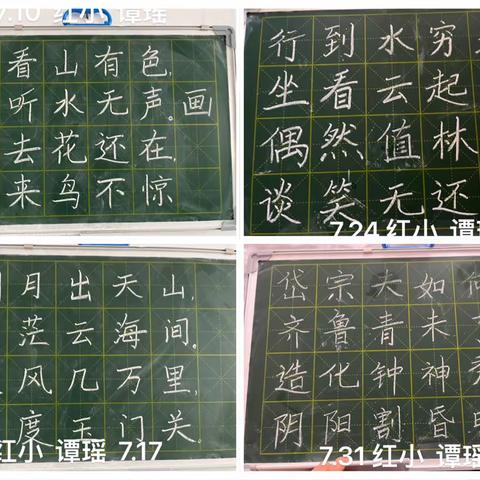 7.10 红小 谭瑶
看山有色,
听水无声。画
去花还在,
来鸟不惊
行到水穷
坐看云起
偶然值林
谈笑无还
7.24 红小 谭瑶
月出天山,
茫云海间。
风几万里,
度玉门关。
红小 谭瑶 7.17
岱宗夫如
齐鲁青未
造化钟神
阴阳割昏
7.31 红小 谭瑶